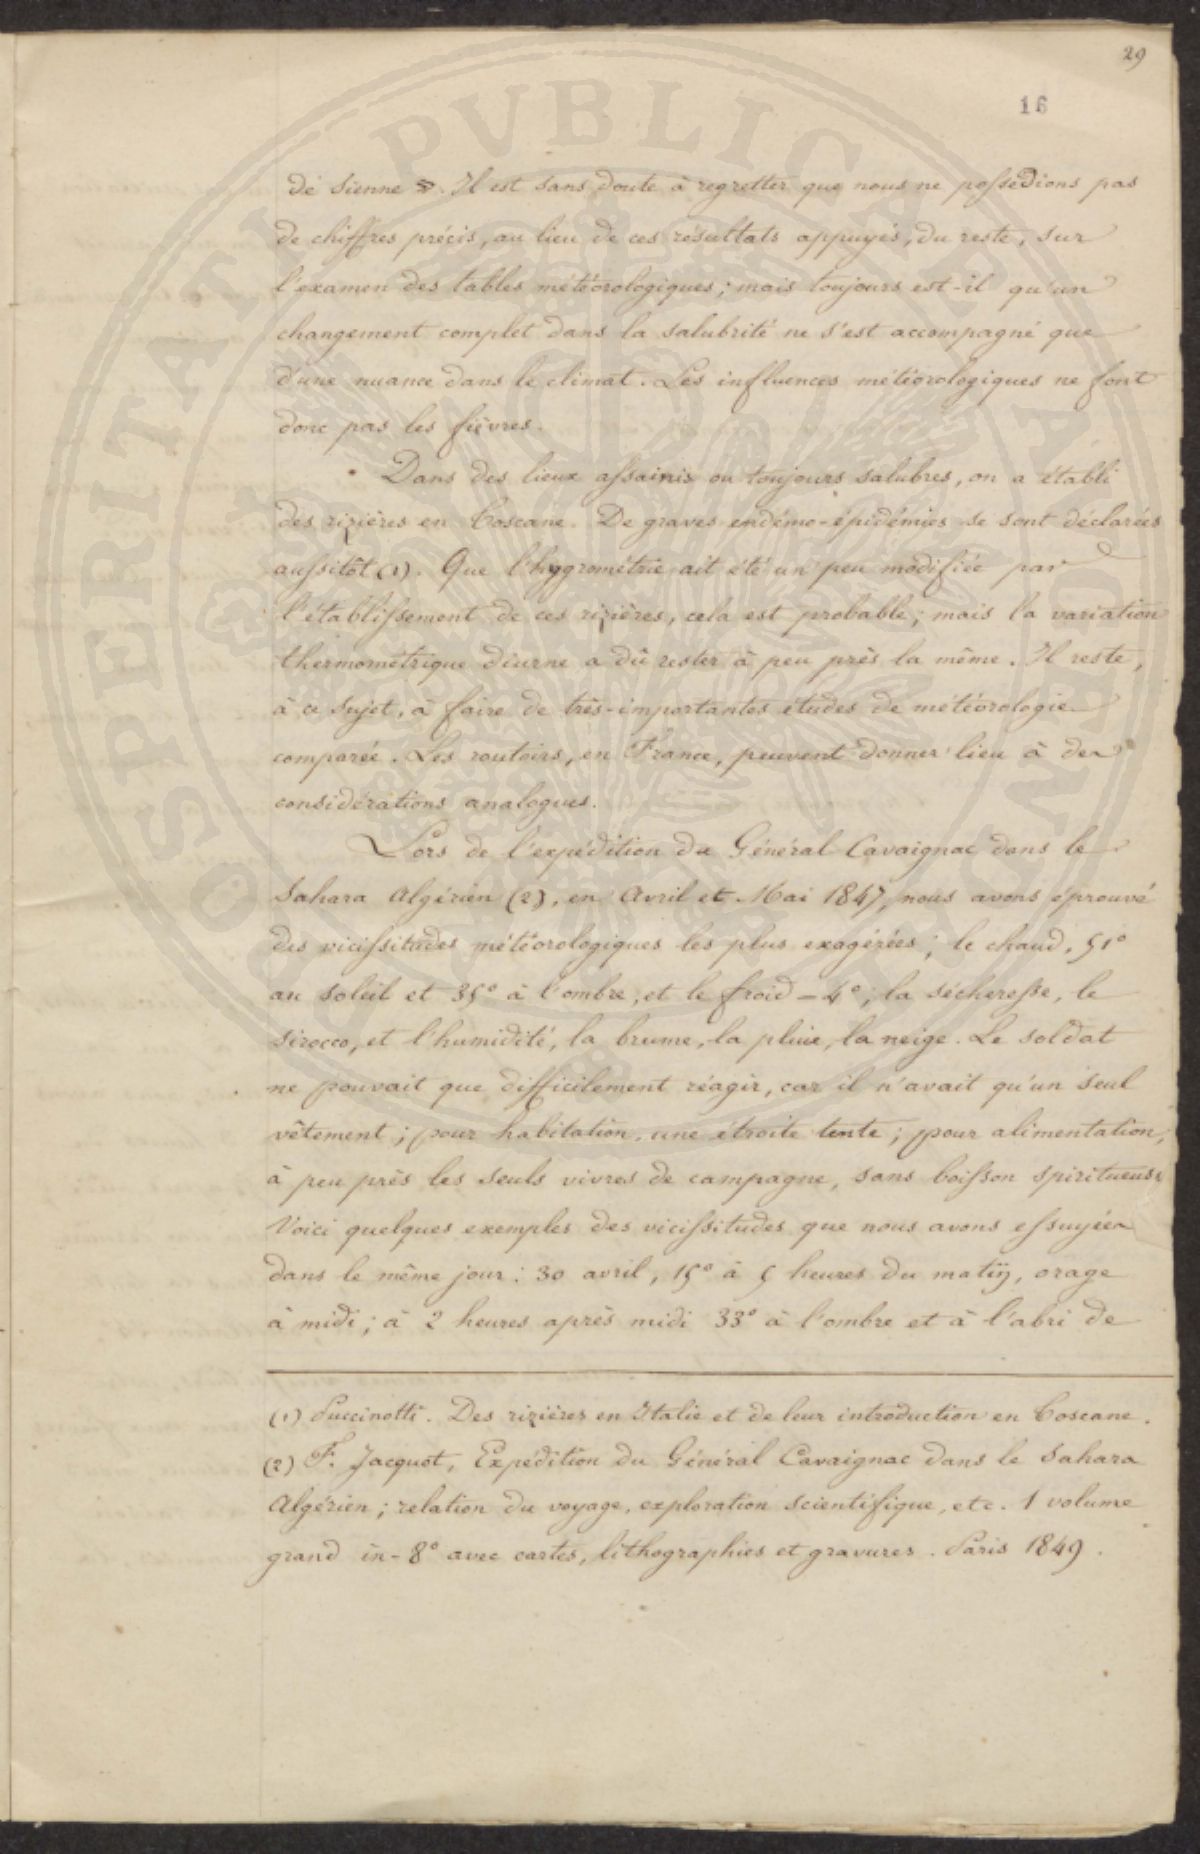 29
16
de Sienne. Il est sans doute à regretter que nous ne possédions pas
de chiffres précis, au lieu de ces résultats appuyés, du reste, sur
l'examen des tables météorologiques; mais toujours est-il qu'un
changement complet dans la salubrité ne s'est accompagné que
d'une nuance dans le climat. Les influences météorologiques ne font
donc pas les fièvres.
Dans des lieux assainis ou toujours salubres, on a établi
des rizières en Toscane. De graves endémo-épidémies se sont déclarées
aussitôt (1). Que l'hygrométrie ait été un peu modifiée par
l'établissement de ces rizières, cela est probable; mais la variation
thermométrique diurne a dû rester à peu près la même. Il reste,
à ce sujet, à faire de très-importantes études de météorologie
comparée. Les routoirs, en France, peuvent donner lieu à des
considérations analogues.
Lors de l'expédition du Général Cavaignac dans le
Sahara Algérien (2), en Avril et Mai 1847, nous avons éprouvé
des vicissitudes météorologiques les plus exagérées; le chaud, 51°
au soleil et 35° à l'ombre, et le froid - 4°; la sécheresse, le
sirocco, et l'humidité, la brume, la pluie, la neige. Le soldat
ne pouvait que difficilement réagir, car il n'avait qu'un seul
vêtement; pour habitation, une étroite tente; pour alimentation,
à peu près les seuls vivres de campagne, sans boisson spiritueuse
Voici quelques exemples des vicissitudes que nous avons essuyées
dans le même jour: 30 avril, 15° à 5 heures du matin, orage
à midi; à 2 heures après midi 33° à l'ombre et à l'abri de
(1) Puccinotti. Des rizières en Italie et de leur introduction en Toscane.
(2) F. Jacquot, Expédition du Général Cavaignac dans le Sahara
Algérien; relation du voyage, exploration scientifique, etc. 1 volume
grand in-8° avec cartes, lithographies et gravures. Paris 1849.